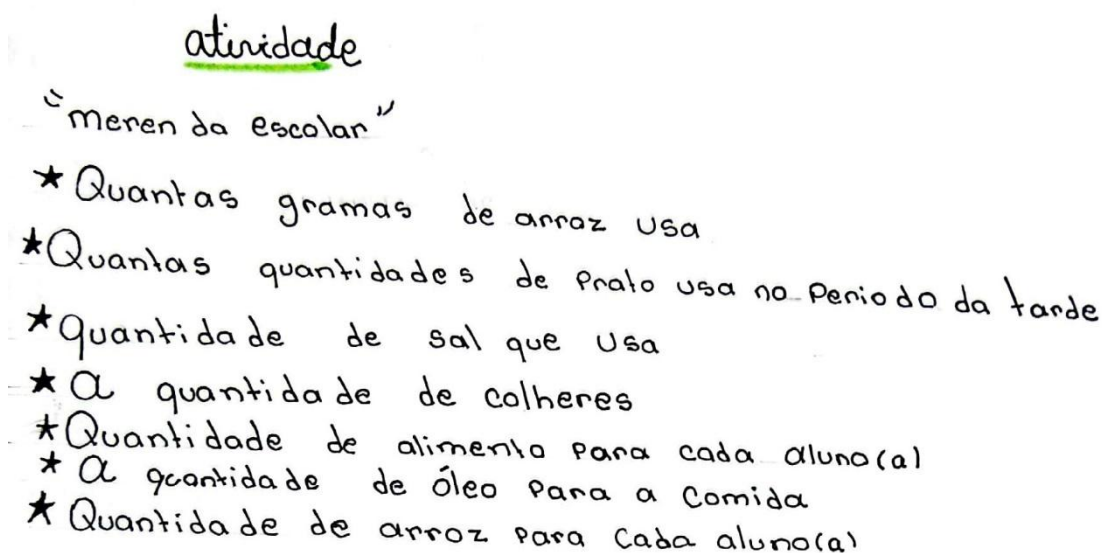 atividade
"merenda escolar"
★ Quantas gramas de arroz usa
★ Quantas quantidades de Prato usa no Periodo da tarde
★ quantidade de sal que usa
★ a quantidade de colheres
★ Quantidade de alimento para cada aluno(a)
★ a qcantidade de óleo para a comida
★ Quantidade de arroz para cada aluno(a)